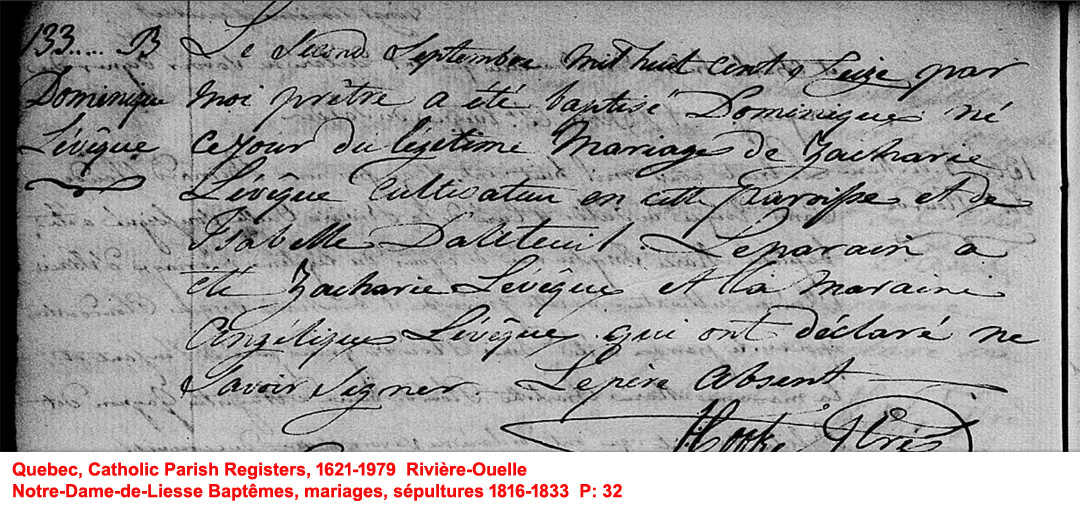 133..... B
Dominique
Lévêque
Le second Septembre mil huit cent seize par
moi prêtre a été baptisé Dominique né
ce jour du légitime Mariage de Zacharie
Lévêque Cultivateur en cette paroisse et de
Isabelle D'auteuil. Le parain a
été Zacharie Lévêque et la maraine
Angélique Lévêque qui ont déclaré ne
Savoir Signer. Le père absent
Ptre
Quebec, Catholic Parish Registers, 1621-1979 Rivière-Ouelle
Notre-Dame-de-Liesse Baptêmes, mariages, sépultures 1816-1833 P: 32